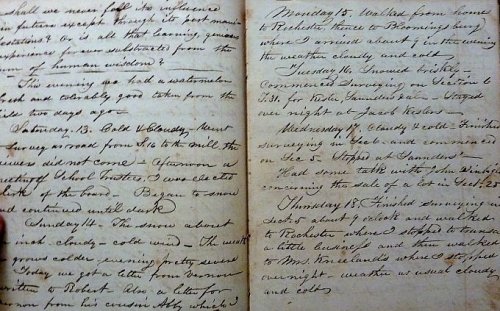 shall we never feel its influence
in future except through its post mani-
festations? Or is all that learning, genius
experience forever substracted from the
sum of human wisdom?
This evening we had a watermelon
fresh and tolerably good taken from the
two days ago
Saturday. 13. Cold & Cloudy. Went
survey as road from to the mill, the
viewers did not come — afternoon a
meeting of School Trustees, I was elected
clerk of the board. Began to snow
and continued until dark
Sunday 14. The snow about
inch — cloudy — cold wind — The weath
grows colder, evening pretty severe
Today we got a letter from Vernon
written to Robert. Also a letter for
Vernon from his cousin Abby which
Monday 15. Walked from home
to Rochester, thence to Bloomingsburg
where I arrived about 9 in the evening
the weather cloudy and cold.
Tuesday 16. Snowed briskly
Commenced Surveying on Section 6
T.31. for Kesler Saunders & Co — Stayed
over night at Jacob Keslers —
Wednesday 17. Cloudy & cold — Finished
surveying in Sec 6 and commenced
on Sec 5 — Stopped at Saunders'
Had some talk with John
concerning the sale of a Lot in Sect.
Thursday 18. Finished surveying in
Sect. 5 about 9 o'clock and walked
to Rochester where I stopped to transa
a little business and then walked
to Mrs. Kneeland's where I stopped
over night — weather as usual cloudy
and cold